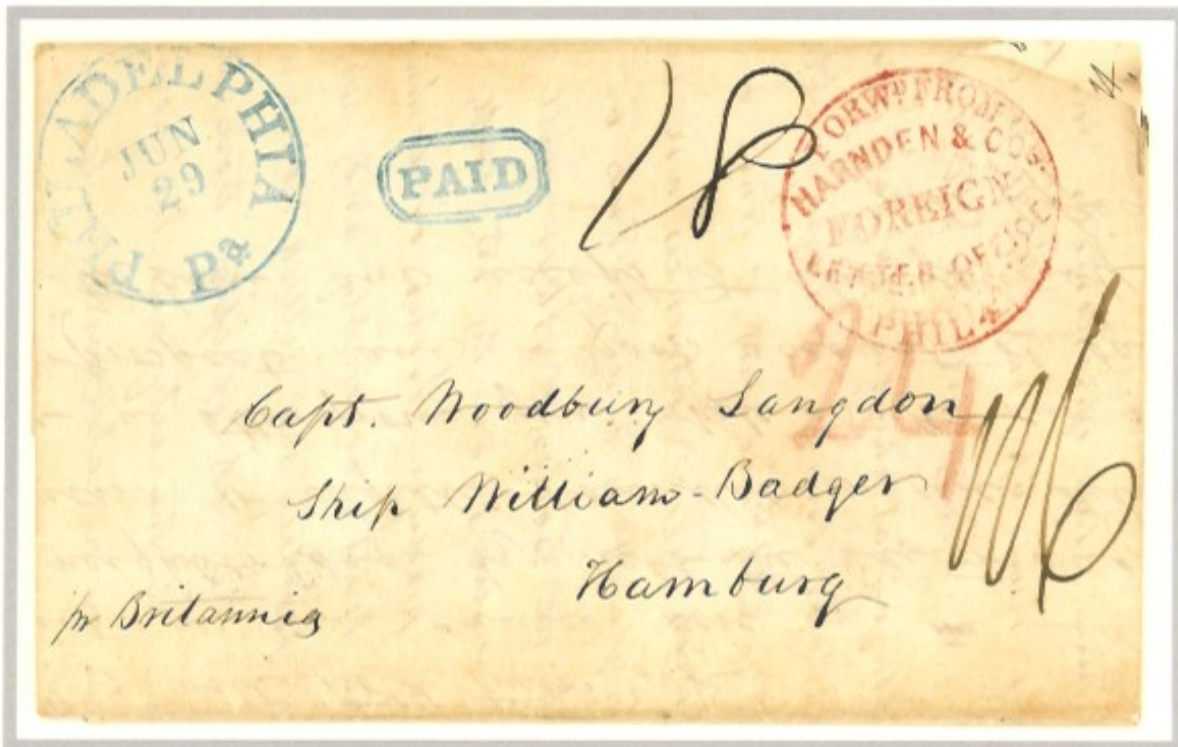 PHILADELPHIA Pa
JUN
29
PAID
18
FORWD FROM
HARNDEN & COs
FOREIGN
LETTER OFFICE
PHILA
24
Capt. Woodbury Langdon
Ship William Badger
Hamburg
pr Britannia